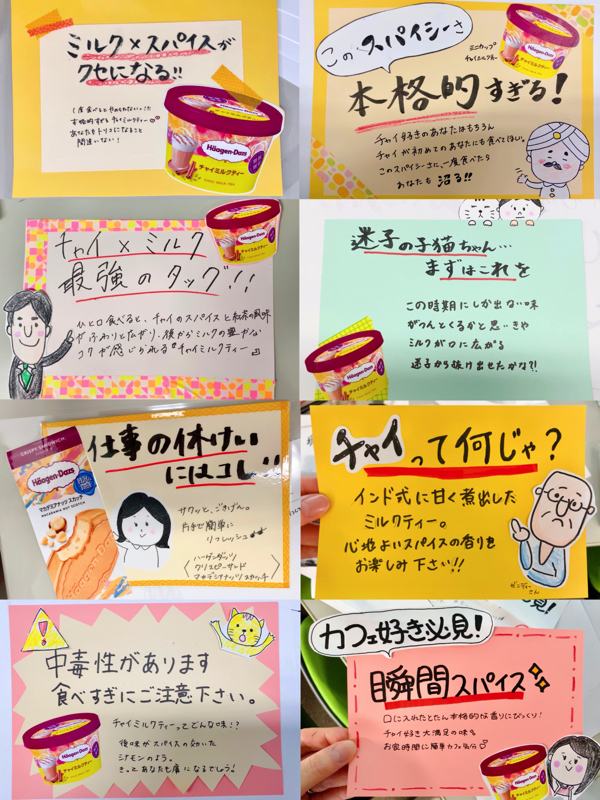 ミルク×スパイスが
クセになる!!
1度食べるとやめられないっ!!
本格的すぎるチャイミルクティー♡♡
あなたもトリコになること
間違いない!
Häagen-Dazs
チャイミルクティー
このスパイシーさ
本格的すぎる!
ミニカップ
チャイミルクティー
Häagen-Dazs
チャイ好きのあなたはもちろん
チャイが初めてのあなたにも食べてほしい。
このスパイシーさに、一度食べたら
あなたも沼る!!
チャイ×ミルク
最強のタッグ!!
Häagen-Dazs
ひと口食べると、チャイのスパイスと紅茶の風味
がふわりと広がり、後からミルクの豊かな
コクが感じられる"チャイミルクティー"
迷子の子猫ちゃん…
まずはこれを
この時期にしか出ない味
がつんとくるかと思いきや
ミルクが口に広がる
迷子から抜け出せたかな?!
Häagen-Dazs
チャイミルクティー
仕事の休けい
にはコレ!!
CRISPY SANDWICH
Häagen-Dazs
マカデミアナッツ スカッチ
MACADAMIA NUT SCOTCH
サクッと、ごきげん。
片手で簡単に
リフレッシュ
ハーゲンダッツ
クリスピーサンド
マカデミアナッツスカッチ
チャイって何じゃ?
インド式に甘く煮出した
ミルクティー。
心地よいスパイスの香りを
お楽しみ下さい!!
ガンディー
さん
中毒性があります
食べすぎにご注意下さい。
チャイミルクティーってどんな味!?
後味がスパイスの効いた
シナモンのよう。
きっとあなたも虜になるでしょう!
Häagen-Dazs
チャイミルクティー
カフェ好き必見!
瞬間スパイス
口に入れたとたん本格的な香りにびっくり!
チャイ好き大満足の味!
お家時間に簡単カフェ気分♡
Häagen-Dazs
チャイミルクティー